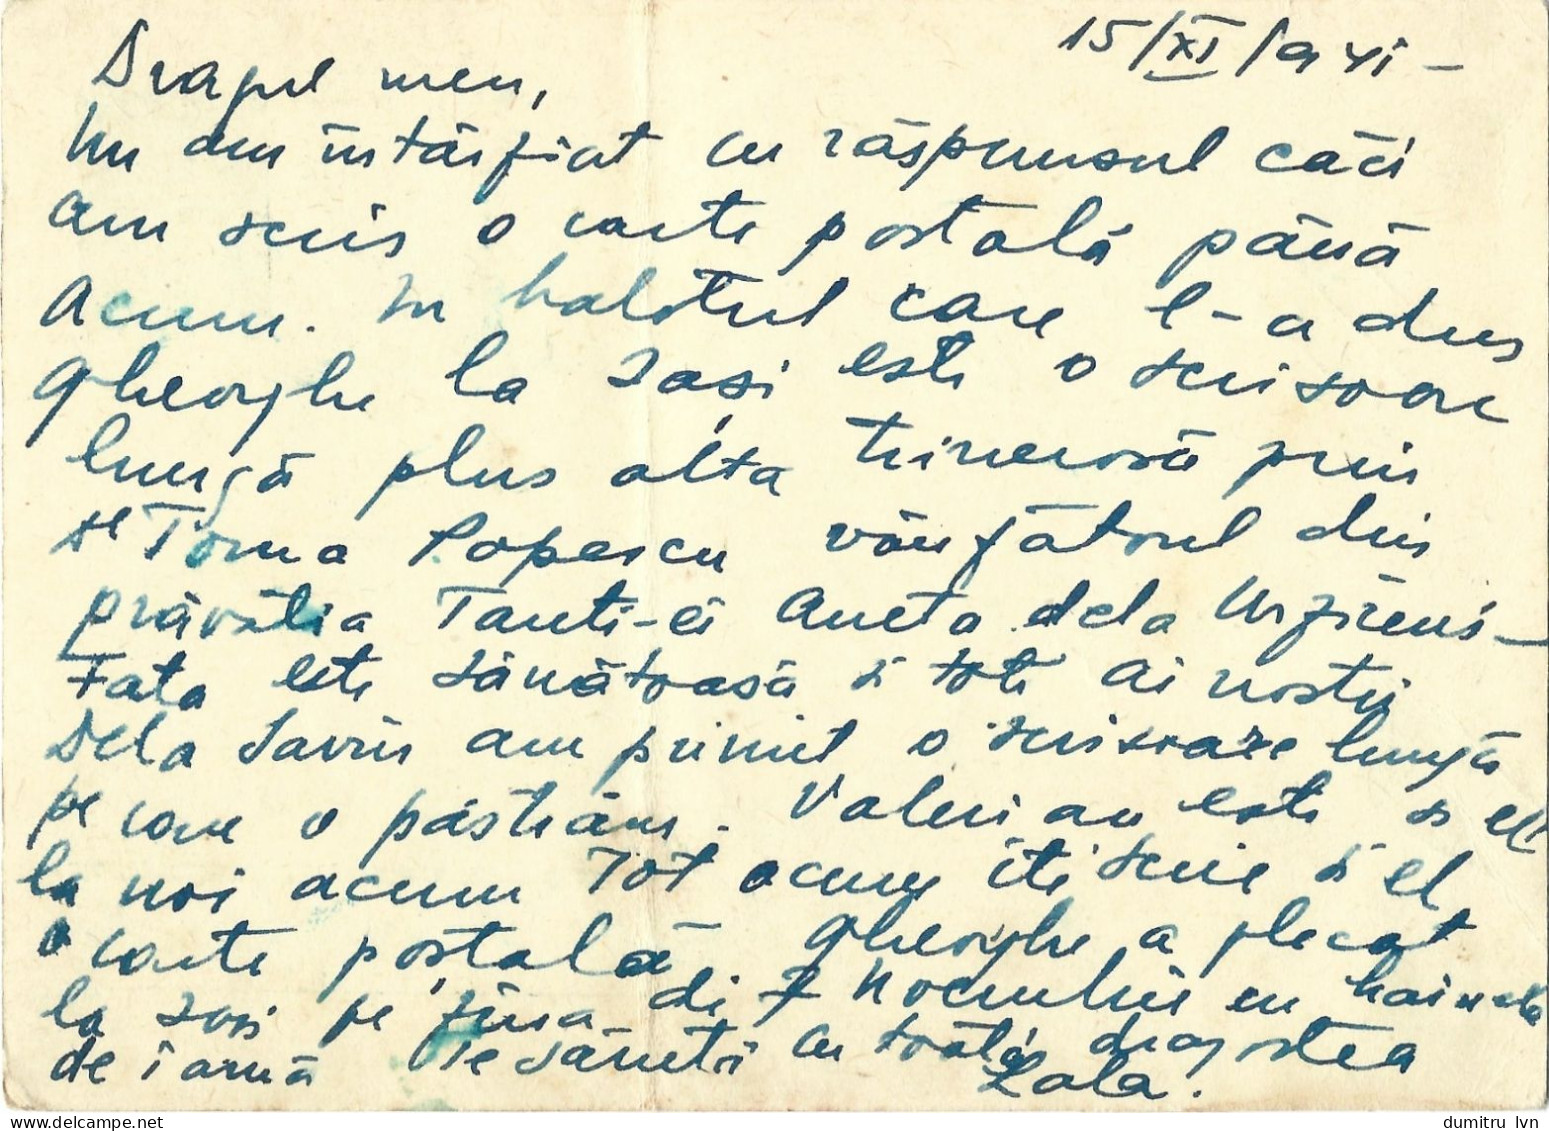 15/XI/941 -
Dragul meu,
Nu am întârziat cu răspunsul căci
am scris o carte postală până
acum. In balotul care l-a dus
Gheorghe la Iași este o scrisoare
lungă plus alta trimeasă prin
dl Toma Popescu vânzătorul din
prăvălia Tanti-ei Aneta dela Urziceni -
Fata este sănătoasă si toti ai nostri
Dela Savin am primit o scrisoare lungă
pe care o păstrăm. Valerian este si el
la noi acum Tot acum iti scrie si el
o carte poștală. Gheorghe a plecat
la Iasi pe ziua di 7 Noembrie cu hainele
de iarnă Te săruti cu toată dragostea
Lola.
dumitru lvn